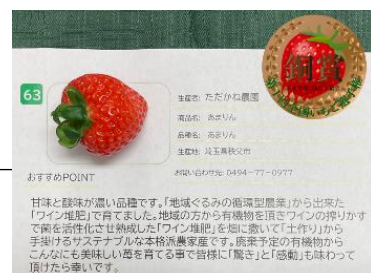 銅賞
63
生産者: ただかね農園
商品名: あまりん
品種名: あまりん
生産地: 埼玉県秩父市
お問い合わせ先: 0494-77-0977
おすすめPOINT
甘味と酸味が濃い品種です。「地域ぐるみの循環型農業」から出来た
「ワイン堆肥」で育てました。地域の方から有機物を頂きワインの搾りかす
で菌を活性化させ熟成した「ワイン堆肥」を畑に撒いて「土作り」から
手掛けるサステナブルな本格派農家産です。廃棄予定の有機物から
こんなにも美味しい苺を育てる事で皆様に「驚き」と「感動」も味わって
頂けたら幸いです。